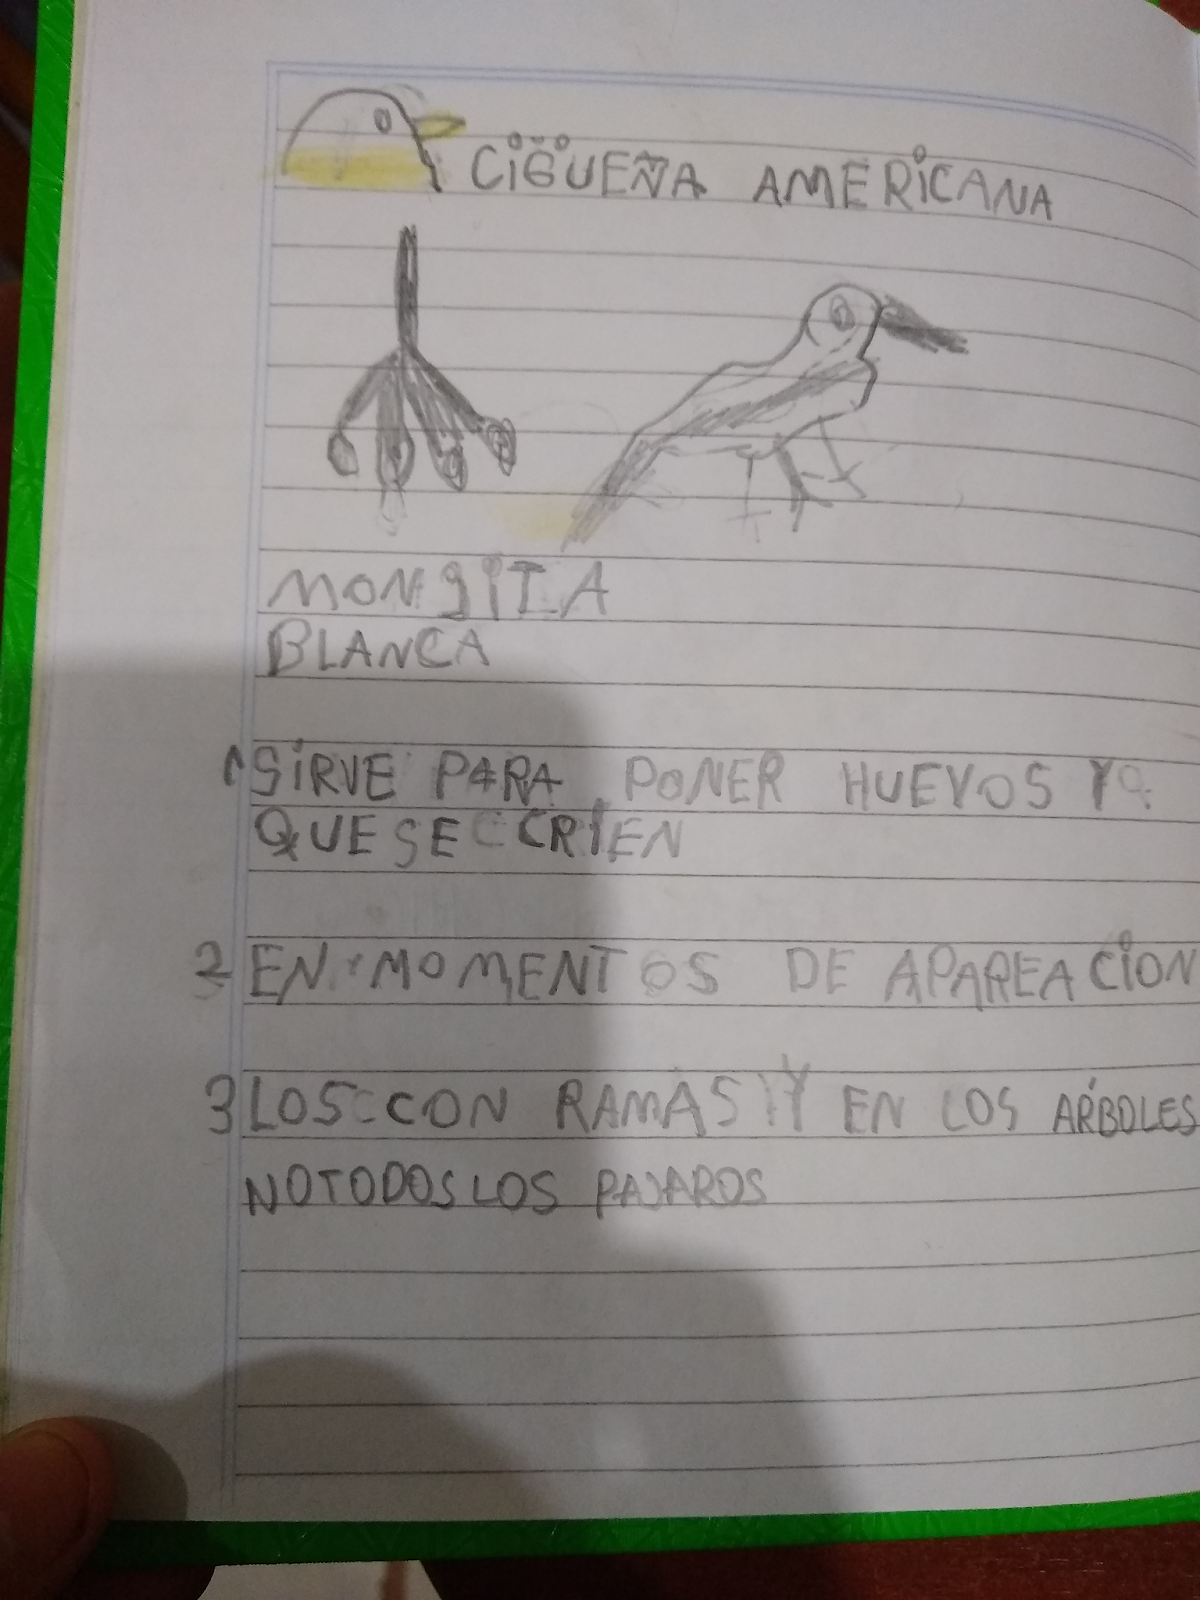 CIGÜEÑA AMERICANA
MONJITA
BLANCA
1 SIRVE PARA PONER HUEVOS Y
QUE SE CRIEN
2 EN MOMENTOS DE APAREACION
3 LOS CON RAMAS Y EN LOS ÁRBOLES
NO TODOS LOS PAJAROS